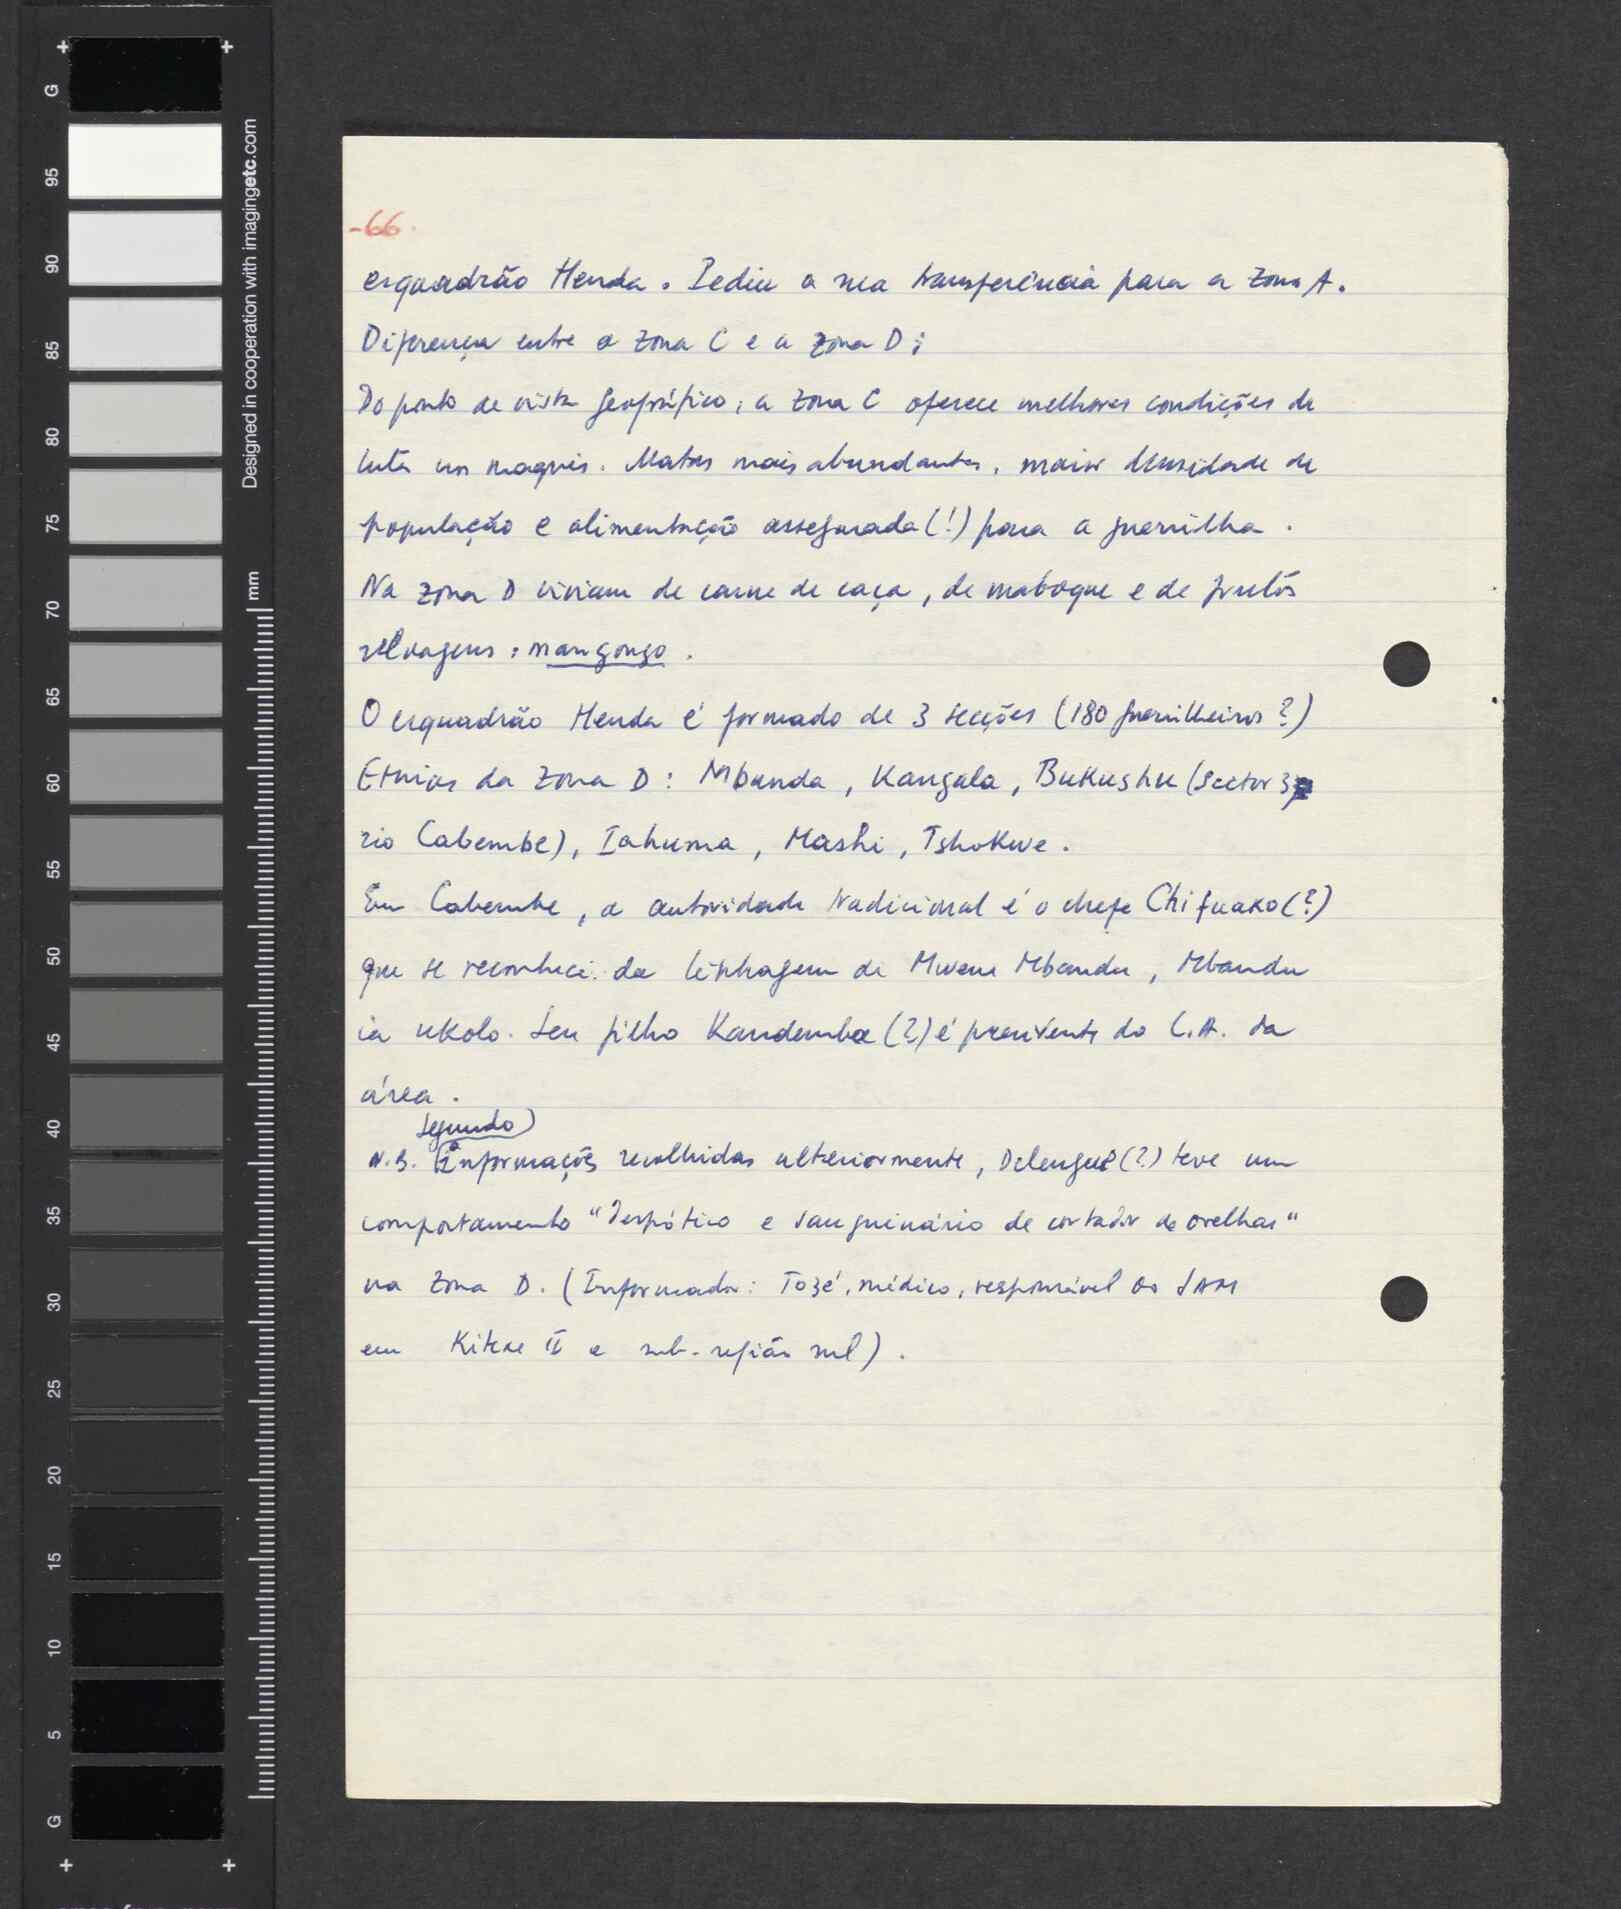 -66.
esquadrão Henda. Pediu a sua transferência para a Zona A.
Diferença entre a Zona C e a Zona D:
Do ponto de vista geográfico, a Zona C oferece melhores condições de
luta nos maquis. Matas mais abundantes, maior densidade de
população e alimentação assegurada (!) para a guerrilha.
Na Zona D viviam de carne de caça, de maboque e de frutos
selvagens: mangongo.
O esquadrão Henda é formado de 3 secções (180 guerrilheiros?)
Etnias da Zona D: Mbunda, Kangala, Bukushu (Sector 3,
rio Cabembe), Iahuma, Mashi, Tshokwe.
Em Cabembe, a autoridade tradicional é o chefe Chifuako (?)
que se reconhece da linhagem de Mwene Mbandu, Mbandu
ia ukolo. Seu filho Kandemba (?) é presidente do C.A. da
área.
segundo
N.B. Informações recolhidas ulteriormente, Delengue (?) teve um
comportamento "despótico e sanguinário de cortador de orelhas"
na Zona D. (Informador: Tozé, médico, responsável do SAM
em Kitexe II e sub-região sul).
G
95
90
85
80
75
70
65
60
55
50
45
40
35
30
25
20
15
10
5
G
Designed in cooperation with imagingetc.com
mm